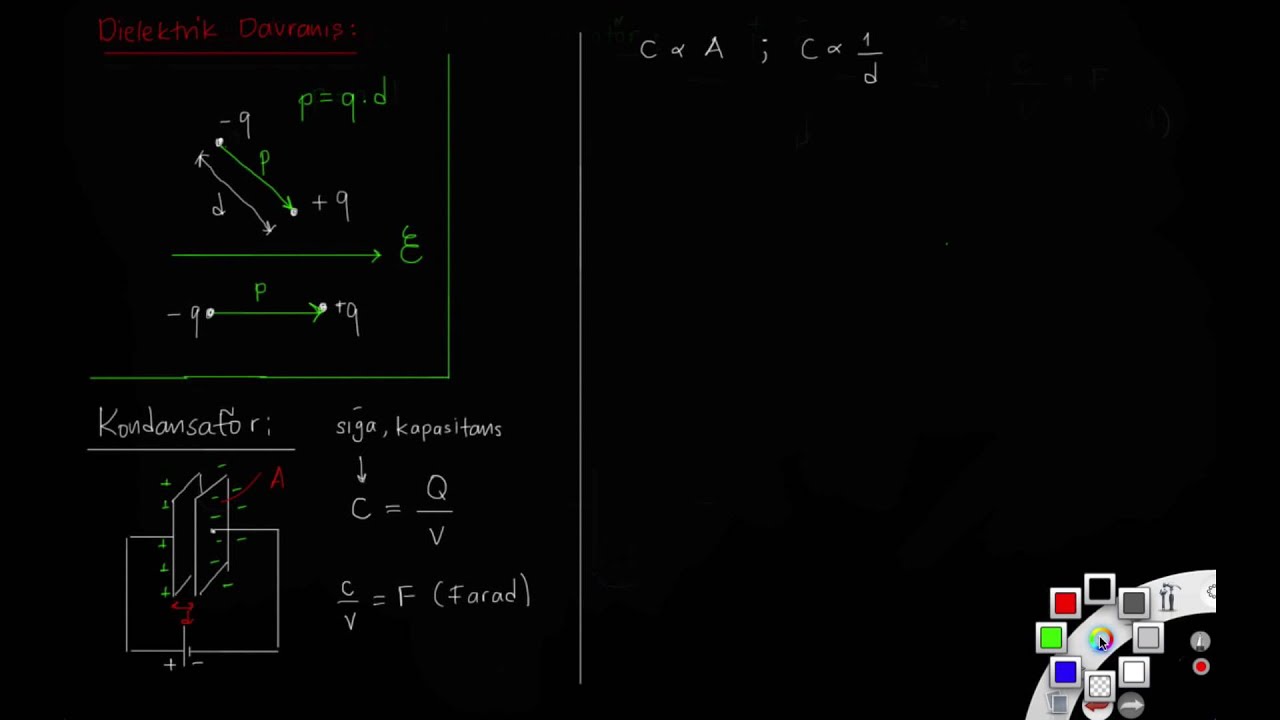 Dielektrik Davranış:
p = q . d
- q
p
d
+ q
ℰ
p
- q
+ q
Kondansatör;
sığa, kapasitans
A
C = Q / V
d
C / V = F (Farad)
+ -
C ∝ A ; C ∝ 1 / d